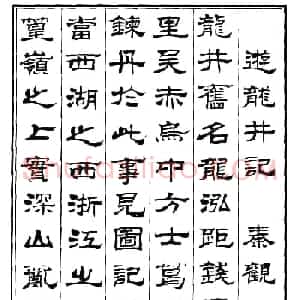 遊龍井記 秦觀
龍井舊名龍泓距錢
里吳赤烏中方士葛
鍊丹於此事見圖記
當西湖之西浙江之
篁嶺之上實深山亂